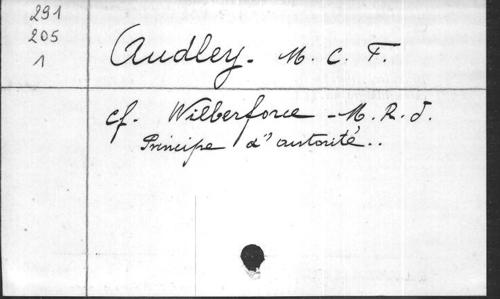 291
205
1
Audley. M. C. F.
cf. Wilberforce - M. R. J.
Principe d'autorité..